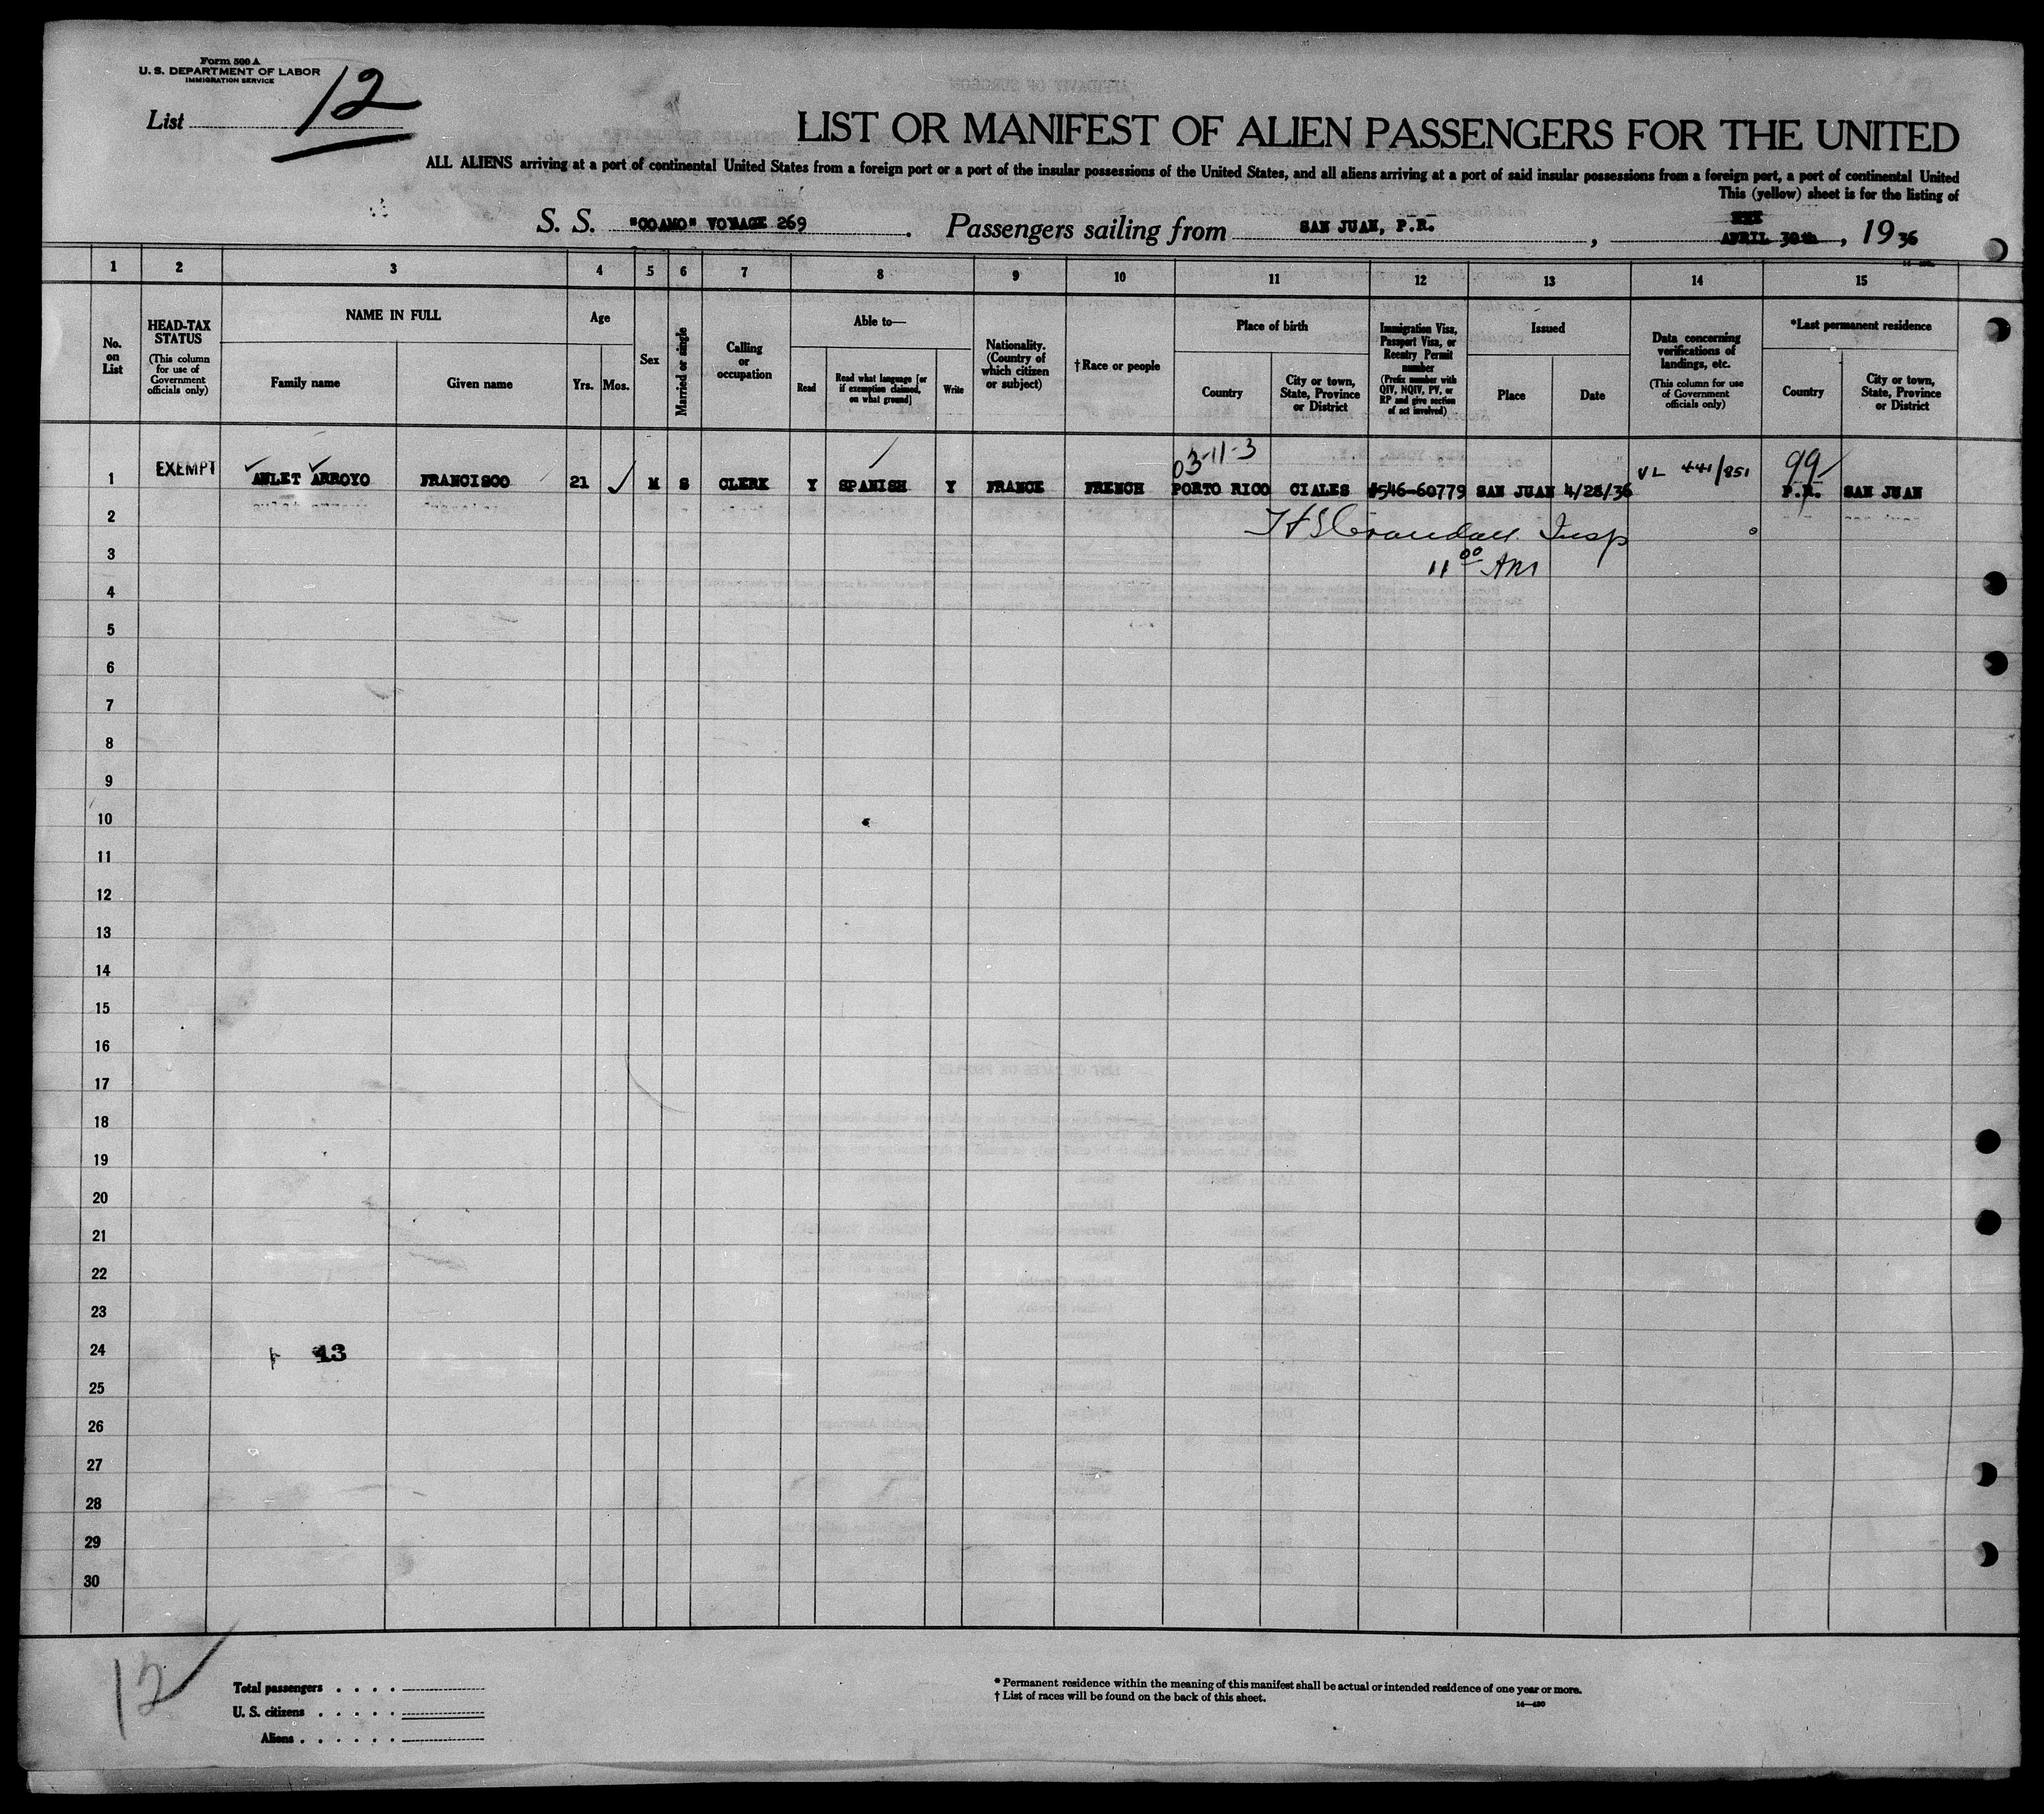 Form 500 A
U. S. DEPARTMENT OF LABOR
IMMIGRATION SERVICE
List 12
LIST OR MANIFEST OF ALIEN PASSENGERS FOR THE UNITED
ALL ALIENS arriving at a port of continental United States from a foreign port or a port of the insular possessions of the United States, and all aliens arriving at a port of said insular possessions from a foreign port, a port of continental United
This (yellow) sheet is for the listing of
S. S. "COAMO" VOYAGE 269. Passengers sailing from SAN JUAN, P.R., APRIL 30th, 1936
1 2 3 4 5 6 7 8 9 10 11 12 13 14 15
No. on List
HEAD-TAX STATUS
(This column for use of Government officials only)
NAME IN FULL
Family name
Given name
Age
Yrs.
Mos.
Sex
Married or single
Calling or occupation
Able to—
Read
Read what language [or if exemption claimed, on what ground]
Write
Nationality. (Country of which citizen or subject)
†Race or people
Place of birth
Country
City or town, State, Province or District
Immigration Visa, Passport Visa, or Reentry Permit number
(Prefix number with QIV, NQIV, PV, or RP and give section of act involved)
Issued
Place
Date
Data concerning verifications of landings, etc.
(This column for use of Government officials only)
*Last permanent residence
Country
City or town, State, Province or District
03-11-3
99
1 EXEMPT ARROYO FRANCISCO 21 M S CLERK Y SPANISH Y FRANCE FRENCH PORTO RICO CIALES #546-60779 SAN JUAN 4/28/36 VL 441/851 P.R. SAN JUAN
2 Crandall Insp
3 11 00 AM
4
5
6
7
8
9
10
11
12
13
14
15
16
17
18
19
20
21
22
23
24 13
25
26
27
28
29
30
12
Total passengers . . . .
U. S. citizens . . . . .
Aliens . . . . . .
* Permanent residence within the meaning of this manifest shall be actual or intended residence of one year or more.
† List of races will be found on the back of this sheet.
14—430